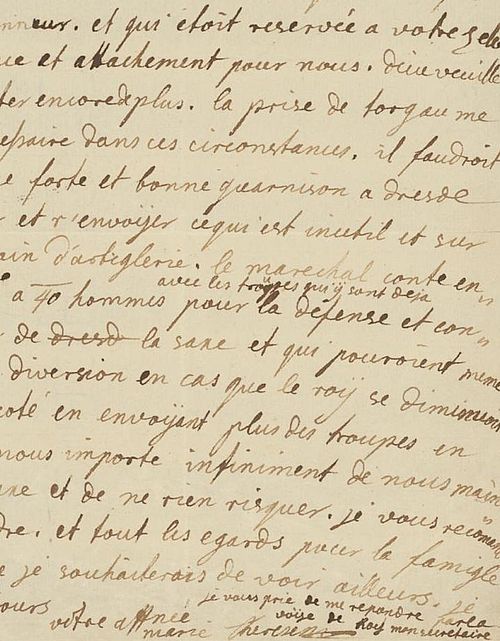 nneur. et qui êtoit reservée a votre zele
ue et attachement pour nous. dieu veuille
ter encore de plus. la prise de torgau me
essaire dans ces circonstances. il faudroit
e forte et bonne guarnison a dresde
r et r'envoijer ce qui est inutil et sur
ain d'artiglerie. le marechal conte en„
avec les troupes qui ij sont deja
a 40 hommes pour la défense et con„
r de dresd la saxe et qui pouroient meme
diversion en cas que le roij se diminuoit
coté en envoijant plus des troupes en
nous importe infiniment de nous main
axe et de ne rien risquer. je vous recomen„
dre. et tout les egards pour la famigle
e je souhaiterois de voir ailleurs. je
je vous prie de me repondre par la
ours votre affnée voije de Koij mon secretaire
marie therese